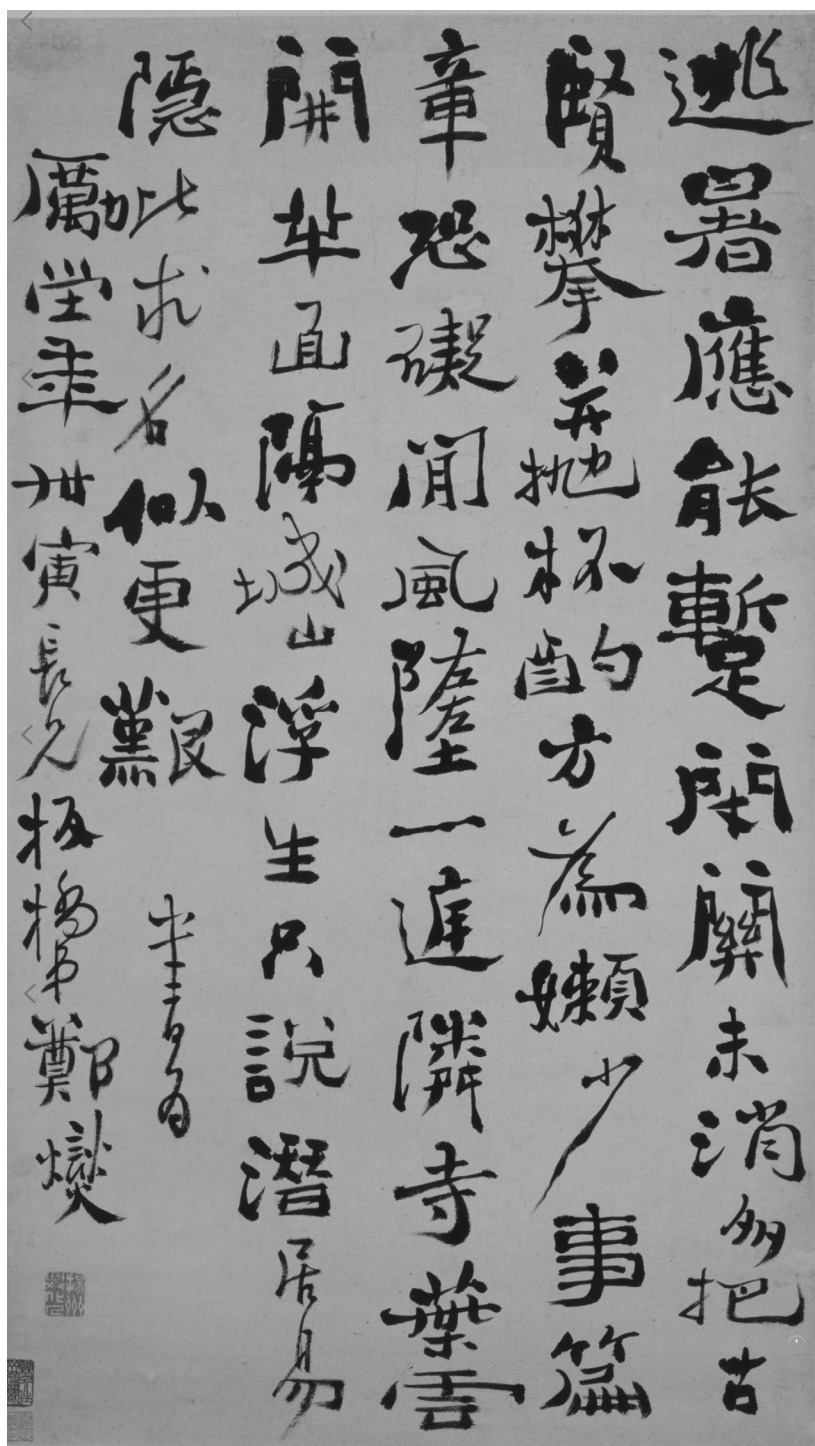 逃暑應能暫閉關未消多把古
賢攀並拋杯酌方為嬾少事篇
章恐礙閒風墮一庭隣寺葉雲
開半面隔城山浮生只說潛居易
隱比求名似更艱
勵堂年世寅長兄板橋弟鄭燮